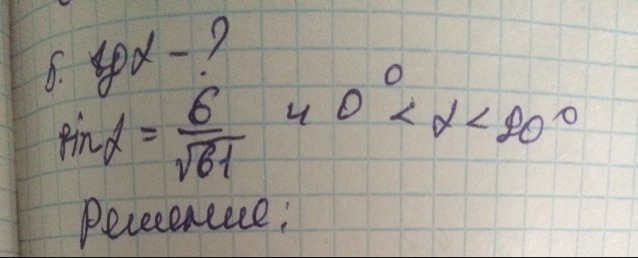 б. tgα - ?
sinα = 6/√61 и 0° < α < 90°
Решение: